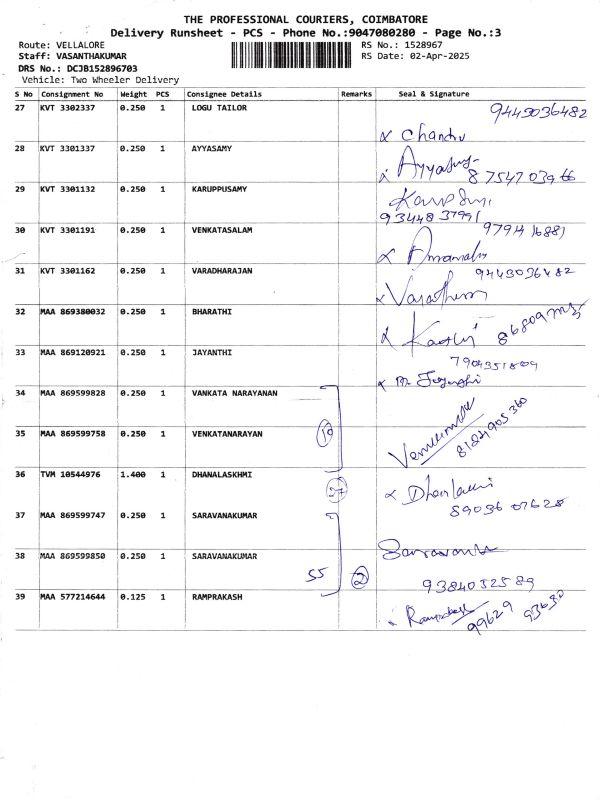 THE PROFESSIONAL COURIERS, COIMBATORE
Delivery Runsheet - PCS - Phone No.:9047080280 - Page No.:3
Route: VELLALORE RS No.: 1528967
Staff: VASANTHAKUMAR RS Date: 02-Apr-2025
DRS No.: DCJB152896703
Vehicle: Two Wheeler Delivery
S No Consignment No Weight PCS Consignee Details Remarks Seal & Signature
27 KVT 3302337 0.250 1 LOGU TAILOR 9443036482
Chandru
28 KVT 3301337 0.250 1 AYYASAMY
87547 03966
29 KVT 3301132 0.250 1 KARUPPUSAMY
93448 37991
30 KVT 3301191 0.250 1 VENKATASALAM 97914 16881
31 KVT 3301162 0.250 1 VARADHARAJAN 9443036482
32 MAA 869380032 0.250 1 BHARATHI
33 MAA 869120921 0.250 1 JAYANTHI 7904351809
34 MAA 869599828 0.250 1 VANKATA NARAYANAN
35 MAA 869599758 0.250 1 VENKATANARAYAN 10 8124905360
36 TVM 10544976 1.400 1 DHANALASKHMI 37
37 MAA 869599747 0.250 1 SARAVANAKUMAR
38 MAA 869599850 0.250 1 SARAVANAKUMAR 55 2
9384032589
39 MAA 577214644 0.125 1 RAMPRAKASH Ramprakash
99629 93630